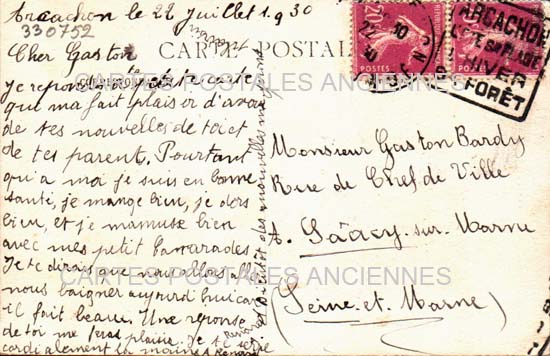 Arcachon le 22 Juillet 1930
330752
Cher Gaston
CARTE POSTALE
Je repond a ta petite carte
qui ma fait plaisir d'avoir
de tes nouvelles de toi et
de tes parent. Pourtant
qu'a moi je suis en bonne
santé, je mange bien, je dors
bien, et je mamuse bien
avec mes petit camarades.
Je te dirais que nous allons aller
nous baigner aujourd'hui car
il fait beau. Une reponse
de toi me feras plaisir. Je te serre
cardialement la mains Renard
Bientôt des nouvelles
POSTES
POSTES
22
10
30
ARCACHON
SA PLAGE
HIVER
FORÊT
Monsieur Gaston Bardy
Rue de Chef de Ville
A. Sâacy-sur-Marne
(Seine-et-Marne)
CARTES POSTALES ANCIENNES
CARTES POSTALES ANCIENNES